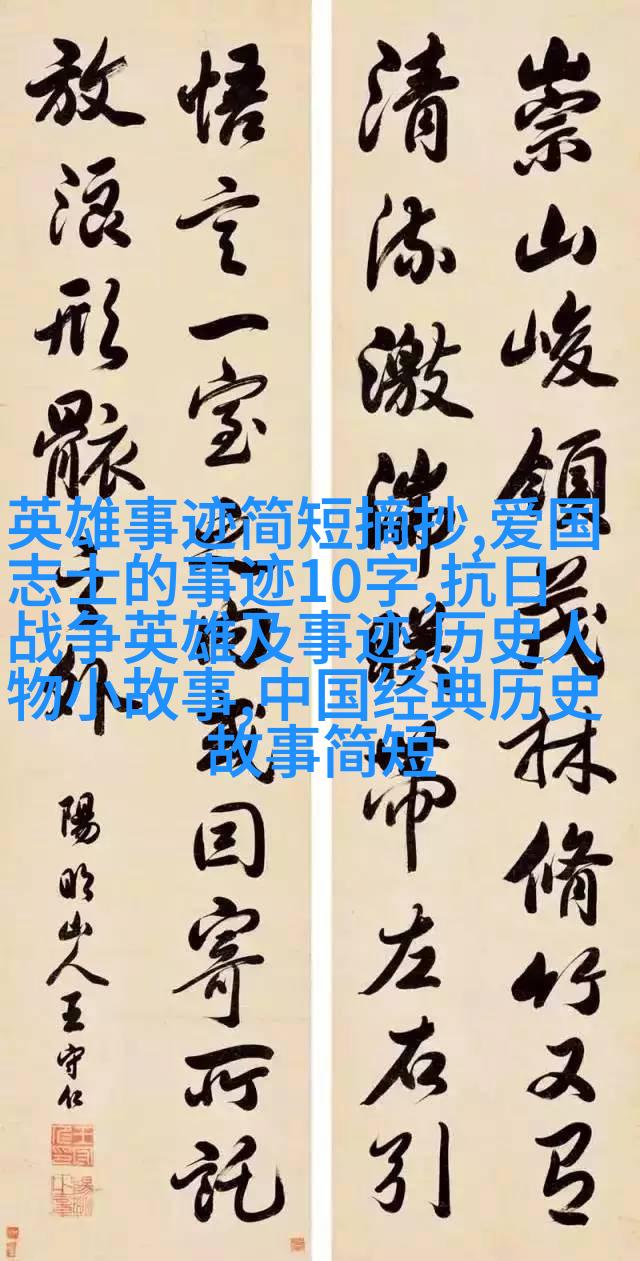 崇山峻領茂林脩竹又有
清流激湍暎帶左右引
悟言一室之内或因寄所託
放浪形骸之外
陽明山人王守仁
英雄事迹简短摘抄,爱国
志士的事迹10字,抗日
战争英雄及事迹,历史人
物小故事,中国经典历史
故事简短